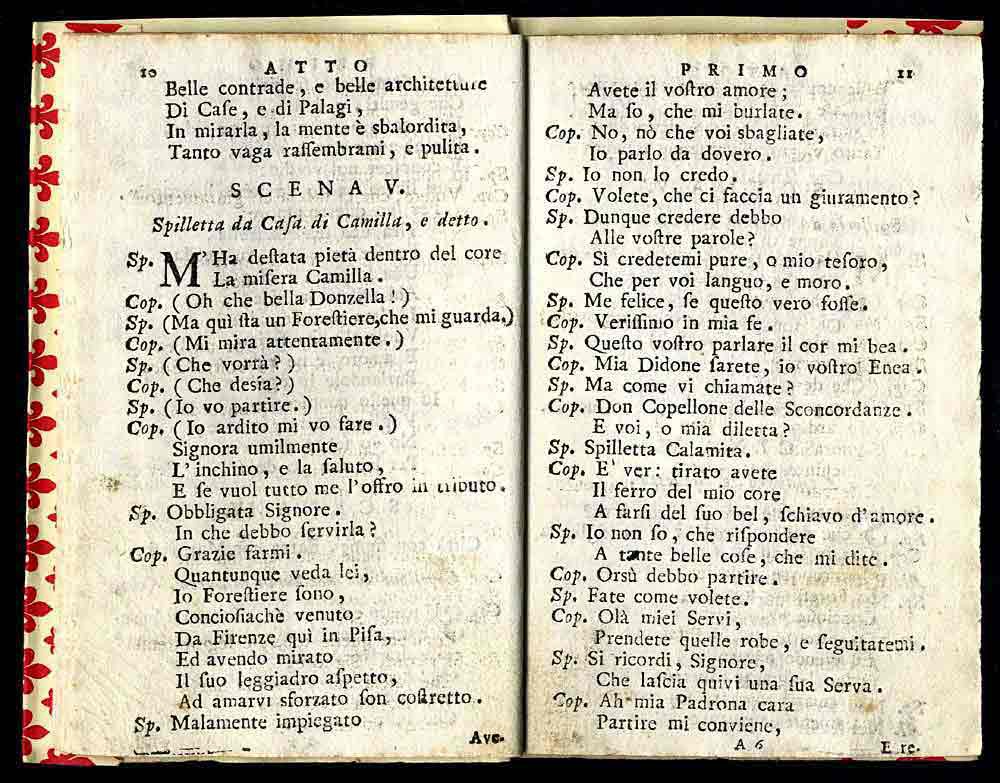 10 ATTO
Belle contrade, e belle architetture
Di Caſe, e di Palagi,
In mirarla, la mente è sbalordita,
Tanto vaga raſſembrami, e pulita.
SCENA V.
Spilletta da Caſa di Camilla, e detto.
Sp. M'Ha deſtata pietà dentro del core
La miſera Camilla.
Cop. (Oh che bella Donzella!)
Sp. (Ma quì ſta un Foreſtiere,che mi guarda.)
Cop. (Mi mira attentamente.)
Sp. (Che vorrà?)
Cop. (Che desia?)
Sp. (Io vo partire.)
Cop. (Io ardito mi vo fare.)
Signora umilmente
L'inchino, e la ſaluto,
E ſe vuol tutto me l'offro in tributo.
Sp. Obbligata Signore.
In che debbo ſervirla?
Cop. Grazie farmi.
Quantunque veda lei,
Io Foreſtiere ſono,
Concioſiachè venuto
Da Firenze quì in Piſa,
Ed avendo mirato
Il ſuo leggiadro aſpetto,
Ad amarvi sforzato ſon coſtretto.
Sp. Malamente impiegato
Ave-
PRIMO 11
Avete il voſtro amore;
Ma ſo, che mi burlate.
Cop. No, nò che voi sbagliate,
Io parlo da dovero.
Sp. Io non lo credo.
Cop. Volete, che ci faccia un giuramento?
Sp. Dunque credere debbo
Alle voſtre parole?
Cop. Sì credetemi pure, o mio teſoro,
Che per voi languo, e moro.
Sp. Me felice, ſe queſto vero foſſe.
Cop. Veriſſimo in mia fe.
Sp. Queſto voſtro parlare il cor mi bea.
Cop. Mia Didone ſarete, io voſtro Enea.
Sp. Ma come vi chiamate?
Cop. Don Copellone delle Sconcordanze.
E voi, o mia diletta?
Sp. Spilletta Calamita.
Cop. E' ver: tirato avete
Il ferro del mio core
A farſi del ſuo bel, ſchiavo d'amore.
Sp. Io non ſo, che riſpondere
A tante belle coſe, che mi dite.
Cop. Orsù debbo partire.
Sp. Fate come volete.
Cop. Olà miei Servi,
Prendete quelle robe, e ſeguitatemi.
Sp. Si ricordi, Signore,
Che laſcia quivi una ſua Serva.
Cop. Ah mia Padrona cara
Partire mi conviene,
A 6 E re-